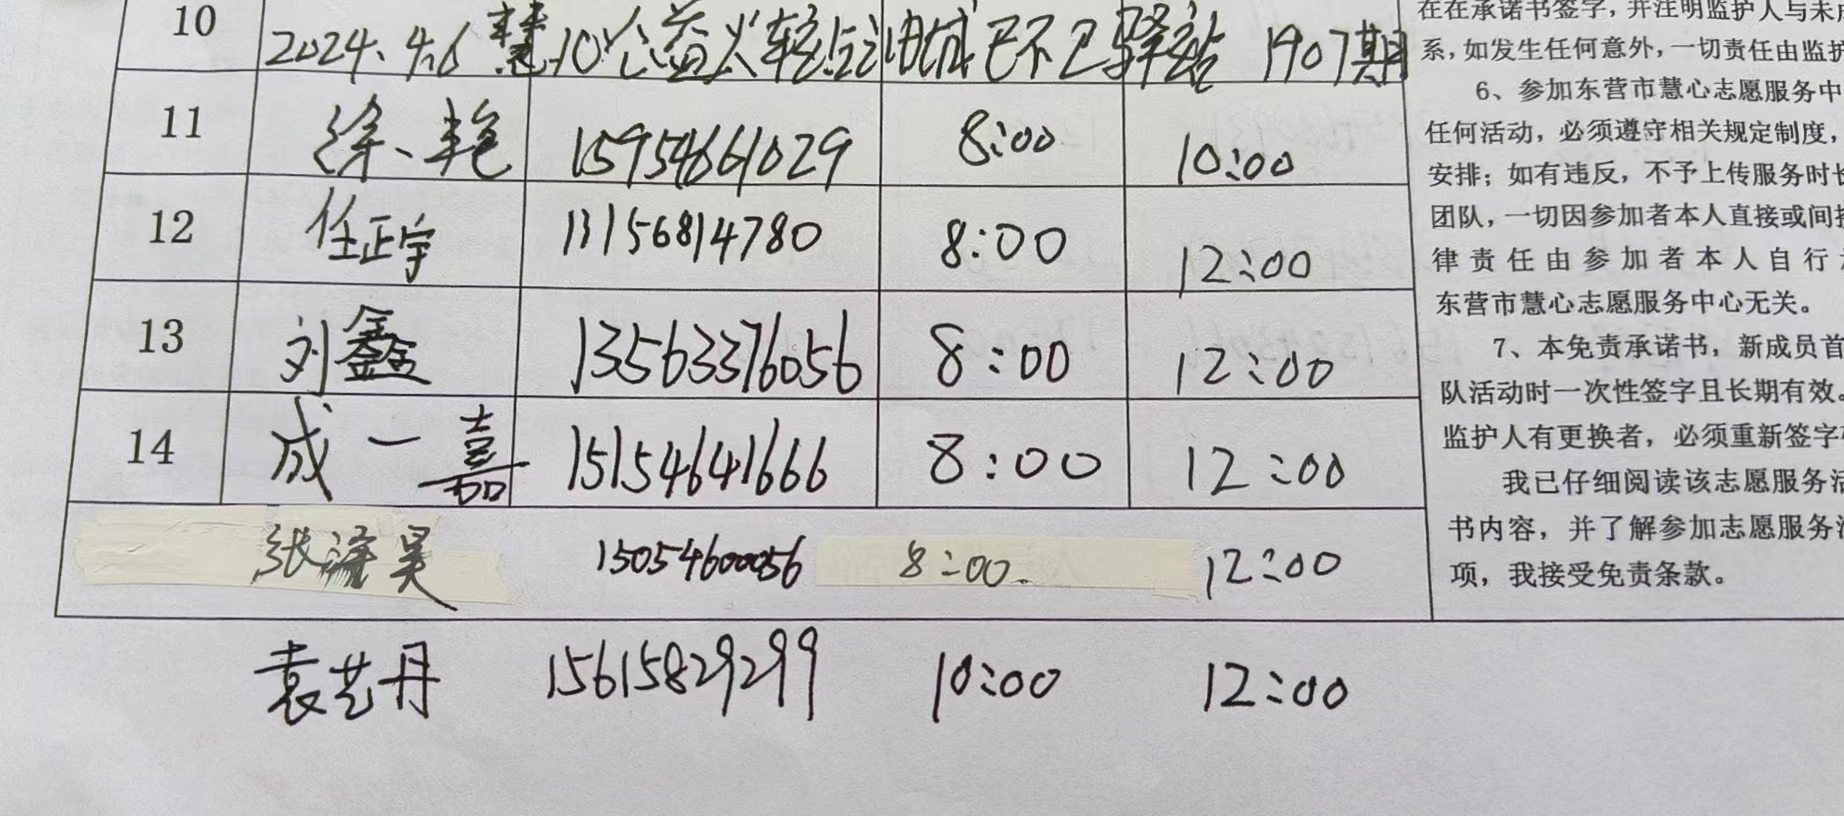 10 2024.4.6 慧心公益火车站油城巴不巴驿站 1907期
11 徐艳 15954661029 8:00 10:00
12 任正宇 13156814780 8:00 12:00
13 刘鑫 13563376056 8:00 12:00
14 成一嘉 15154641666 8:00 12:00
张 昊 15054600056 8:00. 12:00
袁艺丹 15615829299 10:00 12:00
在在承诺书签字，并注明监护人与未
系，如发生任何意外，一切责任由监护
6、参加东营市慧心志愿服务中
任何活动，必须遵守相关规定制度，
安排；如有违反，不予上传服务时长
团队，一切因参加者本人直接或间接
律责任由参加者本人自行
东营市慧心志愿服务中心无关。
7、本免责承诺书，新成员首
队活动时一次性签字且长期有效。
监护人有更换者，必须重新签字
我已仔细阅读该志愿服务活
书内容，并了解参加志愿服务活
项，我接受免责条款。